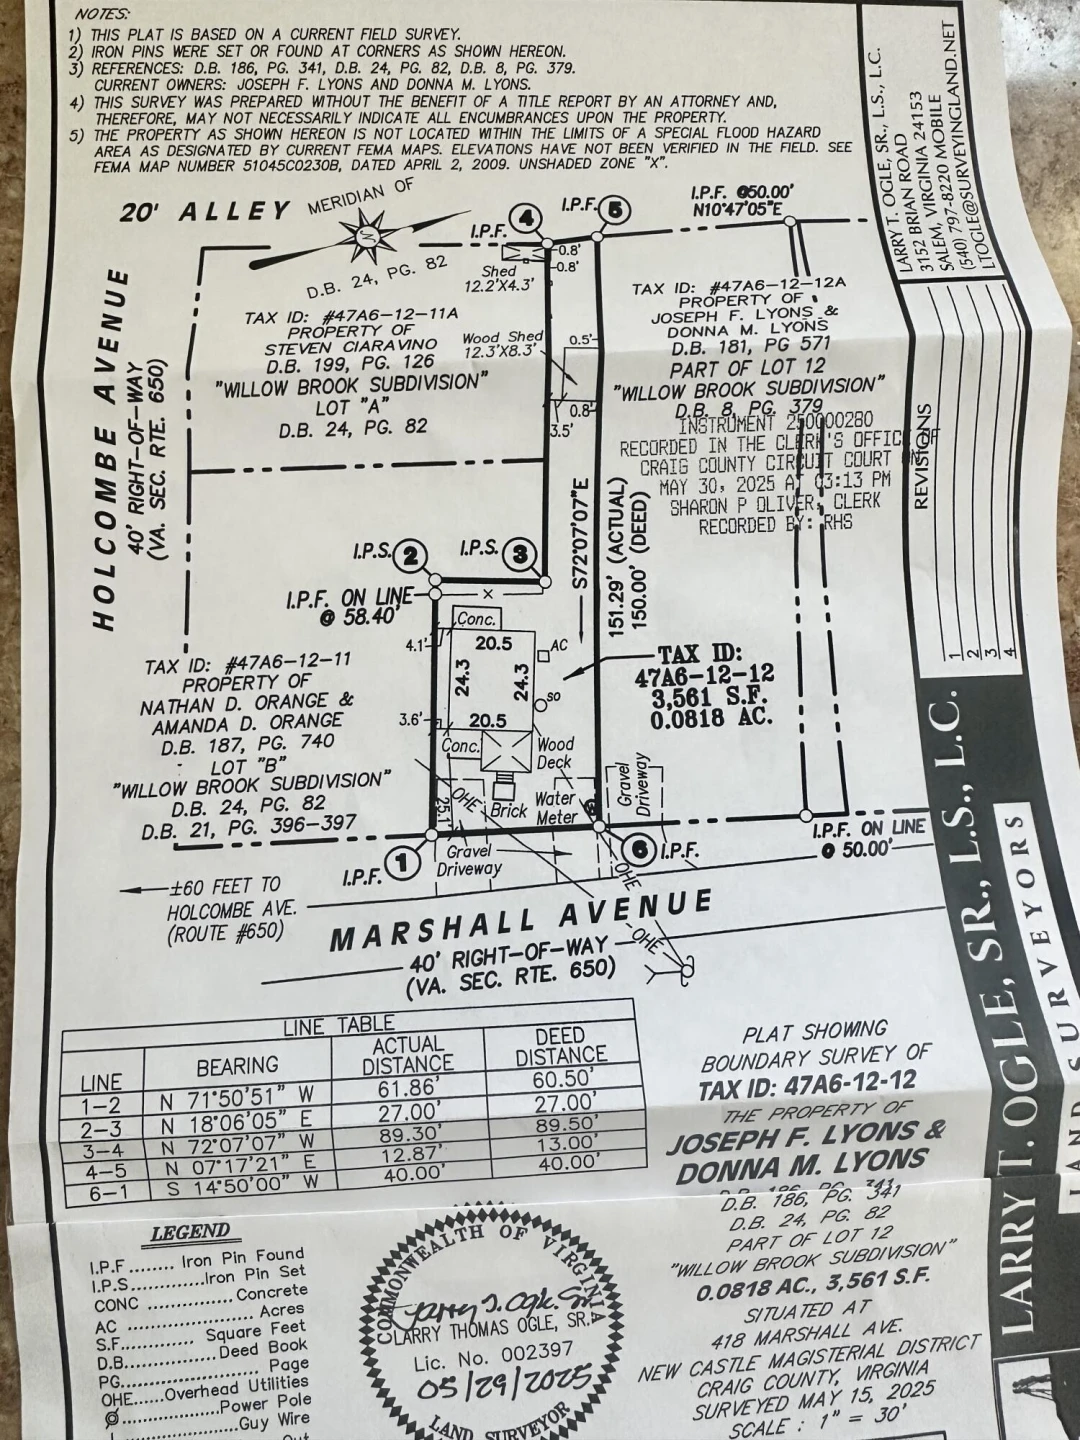 NOTES:
1) THIS PLAT IS BASED ON A CURRENT FIELD SURVEY.
2) IRON PINS WERE SET OR FOUND AT CORNERS AS SHOWN HEREON.
3) REFERENCES: D.B. 186, PG. 341, D.B. 24, PG. 82, D.B. 8, PG. 379.
CURRENT OWNERS: JOSEPH F. LYONS AND DONNA M. LYONS.
4) THIS SURVEY WAS PREPARED WITHOUT THE BENEFIT OF A TITLE REPORT BY AN ATTORNEY AND,
THEREFORE, MAY NOT NECESSARILY INDICATE ALL ENCUMBRANCES UPON THE PROPERTY.
5) THE PROPERTY AS SHOWN HEREON IS NOT LOCATED WITHIN THE LIMITS OF A SPECIAL FLOOD HAZARD
AREA AS DESIGNATED BY CURRENT FEMA MAPS. ELEVATIONS HAVE NOT BEEN VERIFIED IN THE FIELD. SEE
FEMA MAP NUMBER 51045C0230B, DATED APRIL 2, 2009. UNSHADED ZONE "X".
LARRY T. OGLE, SR., L.S., L.C.
3152 BRIAN ROAD
SALEM, VIRGINIA 24153
(540) 797-8220 MOBILE
LTOGLE@SURVEYINGLAND.NET
REVISIONS
1
2
3
4
20' ALLEY
MERIDIAN OF
D.B. 24, PG. 82
I.P.F.
4
I.P.F.
5
I.P.F. @50.00'
N10°47'05"E
0.8'
0.8'
Shed
12.2'X4.3'
HOLCOMBE AVENUE
40' RIGHT-OF-WAY
(VA. SEC. RTE. 650)
TAX ID: #47A6-12-11A
PROPERTY OF
STEVEN CIARAVINO
D.B. 199, PG. 126
"WILLOW BROOK SUBDIVISION"
LOT "A"
D.B. 24, PG. 82
Wood Shed
12.3'X8.3'
0.5'
0.8'
3.5'
TAX ID: #47A6-12-12A
PROPERTY OF
JOSEPH F. LYONS &
DONNA M. LYONS
D.B. 181, PG 571
PART OF LOT 12
"WILLOW BROOK SUBDIVISION"
D.B. 8, PG. 379
INSTRUMENT 250000280
RECORDED IN THE CLERK'S OFFICE OF
CRAIG COUNTY CIRCUIT COURT ON
MAY 30, 2025 AT 03:13 PM
SHARON P OLIVER, CLERK
RECORDED BY: RHS
S72°07'07"E
151.29' (ACTUAL)
150.00' (DEED)
I.P.S.
2
I.P.S.
3
I.P.F. ON LINE
@ 58.40'
X
Conc.
4.1'
20.5
AC
24.3
24.3
SO
3.6'
20.5
Conc.
Wood
Deck
TAX ID:
47A6-12-12
3,561 S.F.
0.0818 AC.
TAX ID: #47A6-12-11
PROPERTY OF
NATHAN D. ORANGE &
AMANDA D. ORANGE
D.B. 187, PG. 740
LOT "B"
"WILLOW BROOK SUBDIVISION"
D.B. 24, PG. 82
D.B. 21, PG. 396-397
25.1'
OHE
Brick
Water
Meter
Gravel
Driveway
Gravel
Driveway
1
I.P.F.
6
I.P.F.
I.P.F. ON LINE
@ 50.00'
OHE
OHE
±60 FEET TO
HOLCOMBE AVE.
(ROUTE #650)
MARSHALL AVENUE
40' RIGHT-OF-WAY
(VA. SEC. RTE. 650)
LINE TABLE
LINE BEARING ACTUAL DISTANCE DEED DISTANCE
1-2 N 71°50'51" W 61.86' 60.50'
2-3 N 18°06'05" E 27.00' 27.00'
3-4 N 72°07'07" W 89.30' 89.50'
4-5 N 07°17'21" E 12.87' 13.00'
6-1 S 14°50'00" W 40.00' 40.00'
PLAT SHOWING
BOUNDARY SURVEY OF
TAX ID: 47A6-12-12
THE PROPERTY OF
JOSEPH F. LYONS &
DONNA M. LYONS
D.B. 186, PG. 341
D.B. 24, PG. 82
PART OF LOT 12
"WILLOW BROOK SUBDIVISION"
0.0818 AC., 3,561 S.F.
SITUATED AT
418 MARSHALL AVE.
NEW CASTLE MAGISTERIAL DISTRICT
CRAIG COUNTY, VIRGINIA
SURVEYED MAY 15, 2025
SCALE : 1" = 30'
LEGEND
I.P.F........ Iron Pin Found
I.P.S............Iron Pin Set
CONC ............ Concrete
AC .................... Acres
S.F............. Square Feet
D.B..............Deed Book
PG..................... Page
OHE.....Overhead Utilities
................Power Pole
................Guy Wire
COMMONWEALTH OF VIRGINIA
Larry T. Ogle, Sr.
LARRY THOMAS OGLE, SR.
Lic. No. 002397
05/29/2025
LAND SURVEYOR
LARRY T. OGLE, SR., L.S., L.C.
LAND SURVEYORS